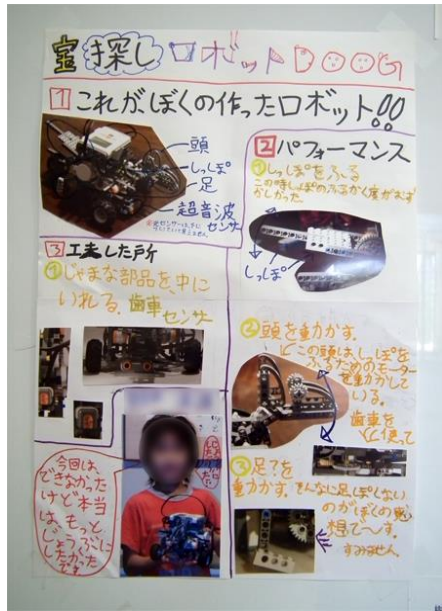 宝探しロボットDOOG
1 これが、ぼくの作ったロボット!!
頭
しっぽ
足
超音波
センサー
2 パフォーマンス
①しっぽをふる
この時しっぽのふるかく度がむず
かしかった。
しっぽ
3 工夫した所
①じゃまな部品を、中に
いれる。歯車
センサー
②頭を動かす。
この頭は、しっぽを
ふるためのモーター
を動かして
いる。
歯車を
使って
③足?を
動かす。そんなに足っぽくない
のがぼくの感
想で〜す。
すみません。
今回は、
できなかった
けど本当
は、もっと
じょうぶに
したかった